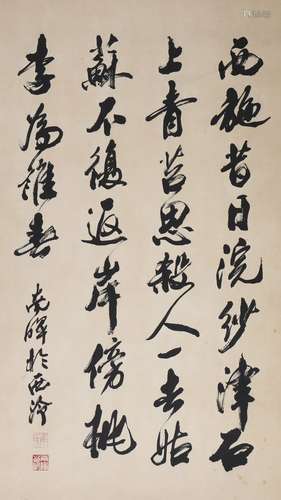 西施昔日浣紗津石
上青苔思殺人一去姑
蘇不復返岸傍桃
李為誰春
堯暉於西泠